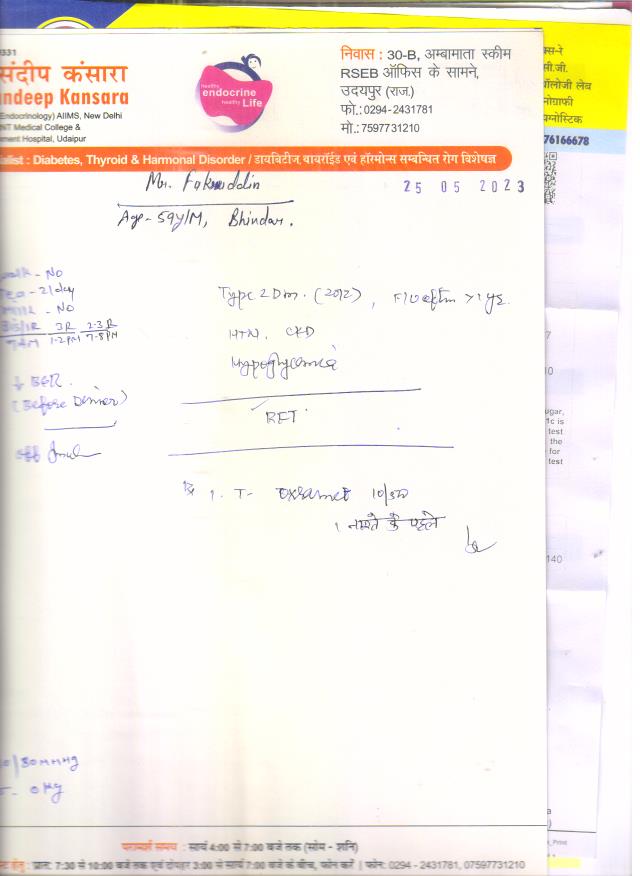 9331
संदीप कंसारा
ndeep Kansara
Endocrinology) AIIMS, New Delhi
NT Medical College &
ment Hospital, Udaipur
healthy
endocrine
healthy Life
निवास : 30-B, अम्बामाता स्कीम
RSEB ऑफिस के सामने,
उदयपुर (राज.)
फो.:0294-2431781
मो.:7597731210
alist : Diabetes, Thyroid & Harmonal Disorder / डायबिटीज, थायरॉईड एवं हॉरमोन्स सम्बन्धित रोग विशेषज्ञ
Mr. Fakruddin
25 05 2023
Age - 59y/M, Bhindar.
walk - No
Tea - 2/day
Milk - No
3R 2-3R
7AM 1-2PM 7-8PM
Type 2 Dm. (2012), F/U after >1 ys.
HTN, CKD
Hypoglycemia
(Before Dinner)
RFT
off
Rx 1. T- 10/500
1 नाश्ते के पहले
/80mmHg
Kg
परामर्श समय : सायं 4:00 से 7:00 बजे तक (सोम - शनि)
हेतु : प्रात: 7:30 से 10:00 बजे तक एवं दोपहर 3:00 से सायं 7:00 बजे के बीच, फोन करें | फोन: 0294 - 2431781, 07597731210
क्स-रे
सी.जी.
ॉलोजी लेब
नोग्राफी
ग्नोस्टिक
76166678
ugar,
1c is
test
the
for
test
140
_Print